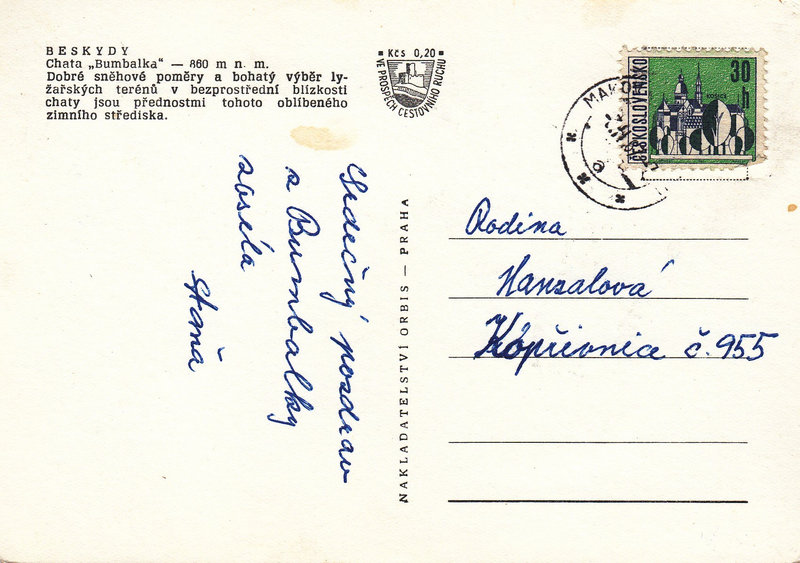 BESKYDY
Chata „Bumbalka“ — 860 m n. m.
Dobré sněhové poměry a bohatý výběr ly-
žařských terénů v bezprostřední blízkosti
chaty jsou přednostmi tohoto oblíbeného
zimního střediska.
Kčs 0,20
VE PROSPĚCH CESTOVNÍHO RUCHU
ČESKOSLOVENSKO
30
h
Srdečný pozdrav
z Bumbalky
zasílá
Staňa
NAKLADATELSTVÍ ORBIS — PRAHA
Rodina
Hanzalová
Kopřivnice č. 955